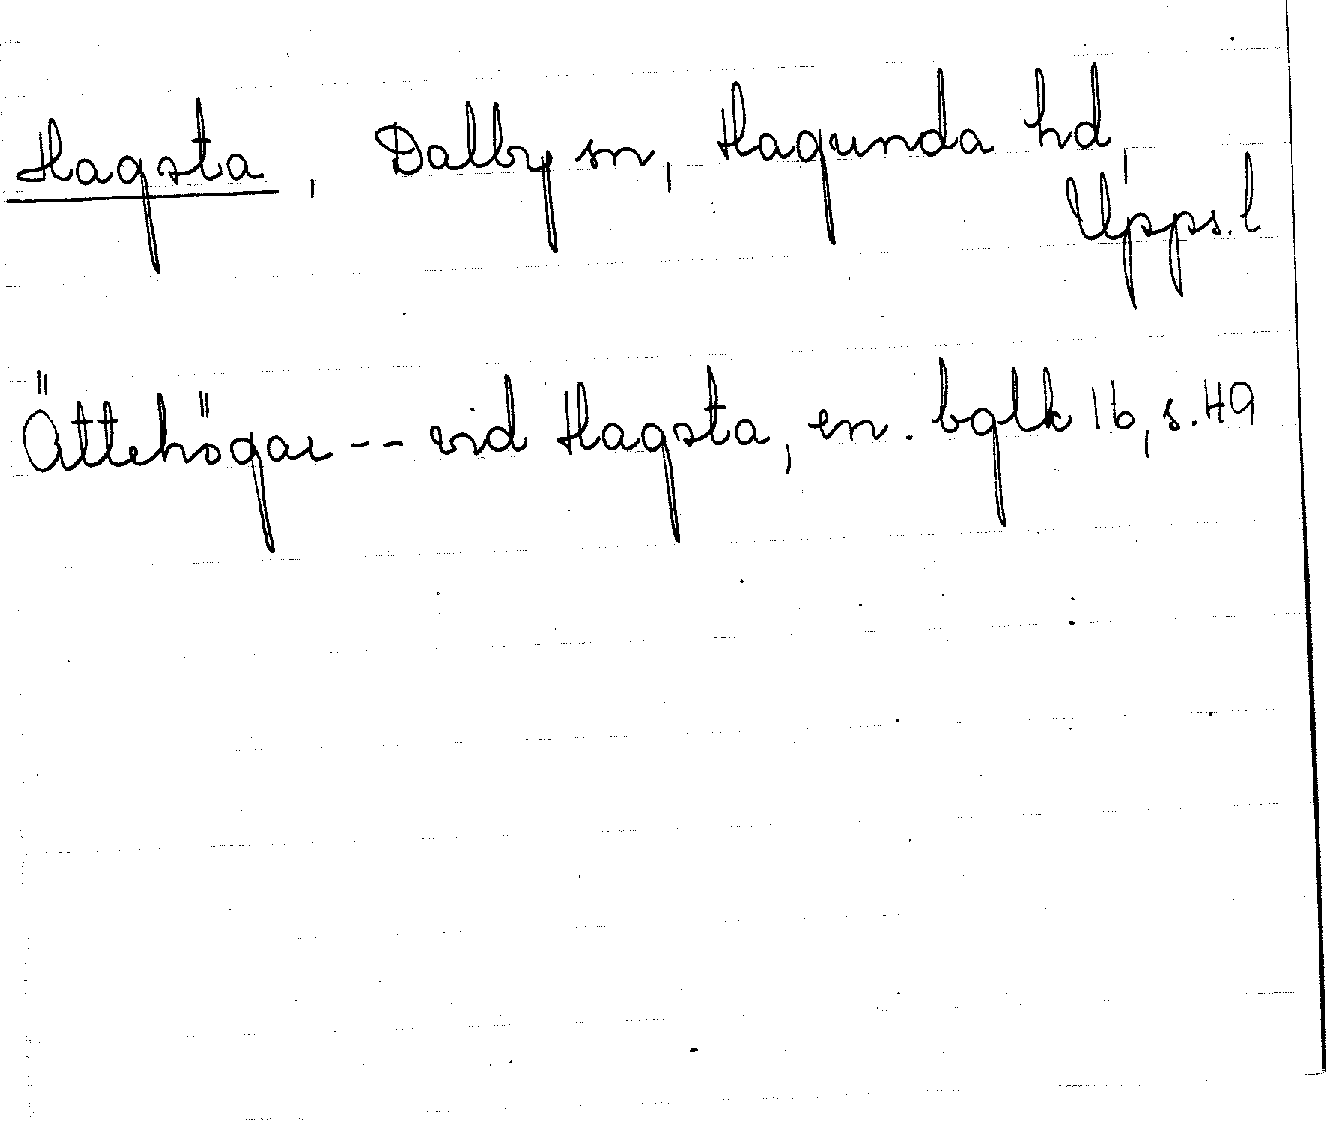 Hagsta, Dalby sn, Hagunda hd,
Upps. l
Ättehögar -- vid Hagsta, en. bglk 16, s. 49